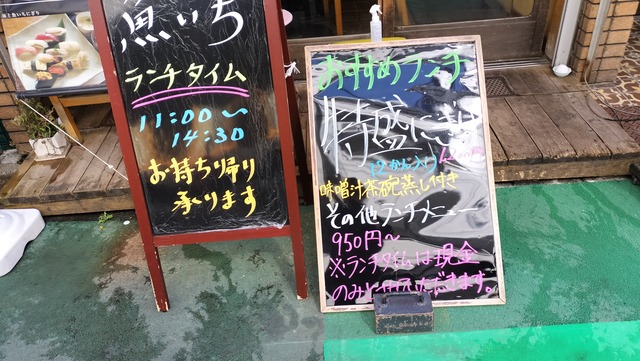 魚いち
ランチタイム
11:00～
14:30
お持ち帰り
承ります
おすすめランチ
特盛にぎり
12かん入り
味噌汁茶碗蒸し付き
その他ランチメニュー
950円～
※ランチタイムは現金
のみとさせていただきます。